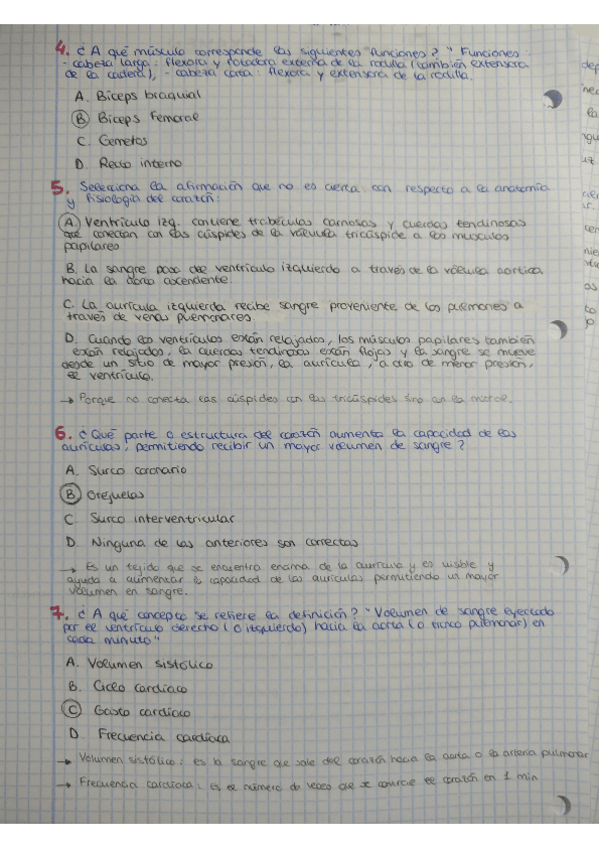 4. ¿A qué músculo corresponde las siguientes funciones? "Funciones:
- cabeza larga: flexora y rotadora externa de la rodilla (también extensora
de la cadera), - cabeza corta: flexora y extensora de la rodilla.
A. Bíceps braquial
B Bíceps Femoral
C. Gemelos
D. Recto interno
5. Selecciona la afirmación que no es cierta con respecto a la anatomía
y fisiología del corazón:
A Ventrículo izq. contiene trabéculas carnosas y cuerdas tendinosas
que conectan con las cúspides de la válvula tricúspide a los musculos
papilares
B. La sangre pasa del ventrículo izquierdo a través de la válvula aortica
hacia la aorta ascendente.
C. La aurícula izquierda recibe sangre proveniente de los pulmones a
través de venas pulmonares.
D. Cuando los ventrículos están relajados, los músculos papilares también
están relajados, la cuerdas tendinosa están flojas y la sangre se mueve
desde un sitio de mayor presión, la aurícula, a otro de menor presión,
el ventrículo.
→ Porque no conecta las cúspides con las tricúspides sino con la mitral.
6. ¿Qué parte o estructura del corazón aumenta la capacidad de las
aurículas, permitiendo recibir un mayor volumen de sangre?
A. Surco coronario
B Orejuelas
C. Surco interventricular
D. Ninguna de las anteriores son correctas
→ Es un tejido que se encuentra encima de la aurícula y es visible y
ayuda a aumentar la capacidad de las aurículas permitiendo un mayor
volumen en sangre.
7. ¿A qué concepto se refiere la definición? "Volumen de sangre eyectado
por el ventrículo derecho (o izquierdo) hacia la aorta (o tronco pulmonar) en
cada minuto"
A. Volumen sistólico
B. Ciclo cardíaco
C Gasto cardíaco
D. Frecuencia cardíaca
→ Volumen sistólico: es la sangre que sale del corazón hacia la aorta o la arteria pulmonar
→ Frecuencia cardíaca: es el número de veces que se contrae el corazón en 1 min